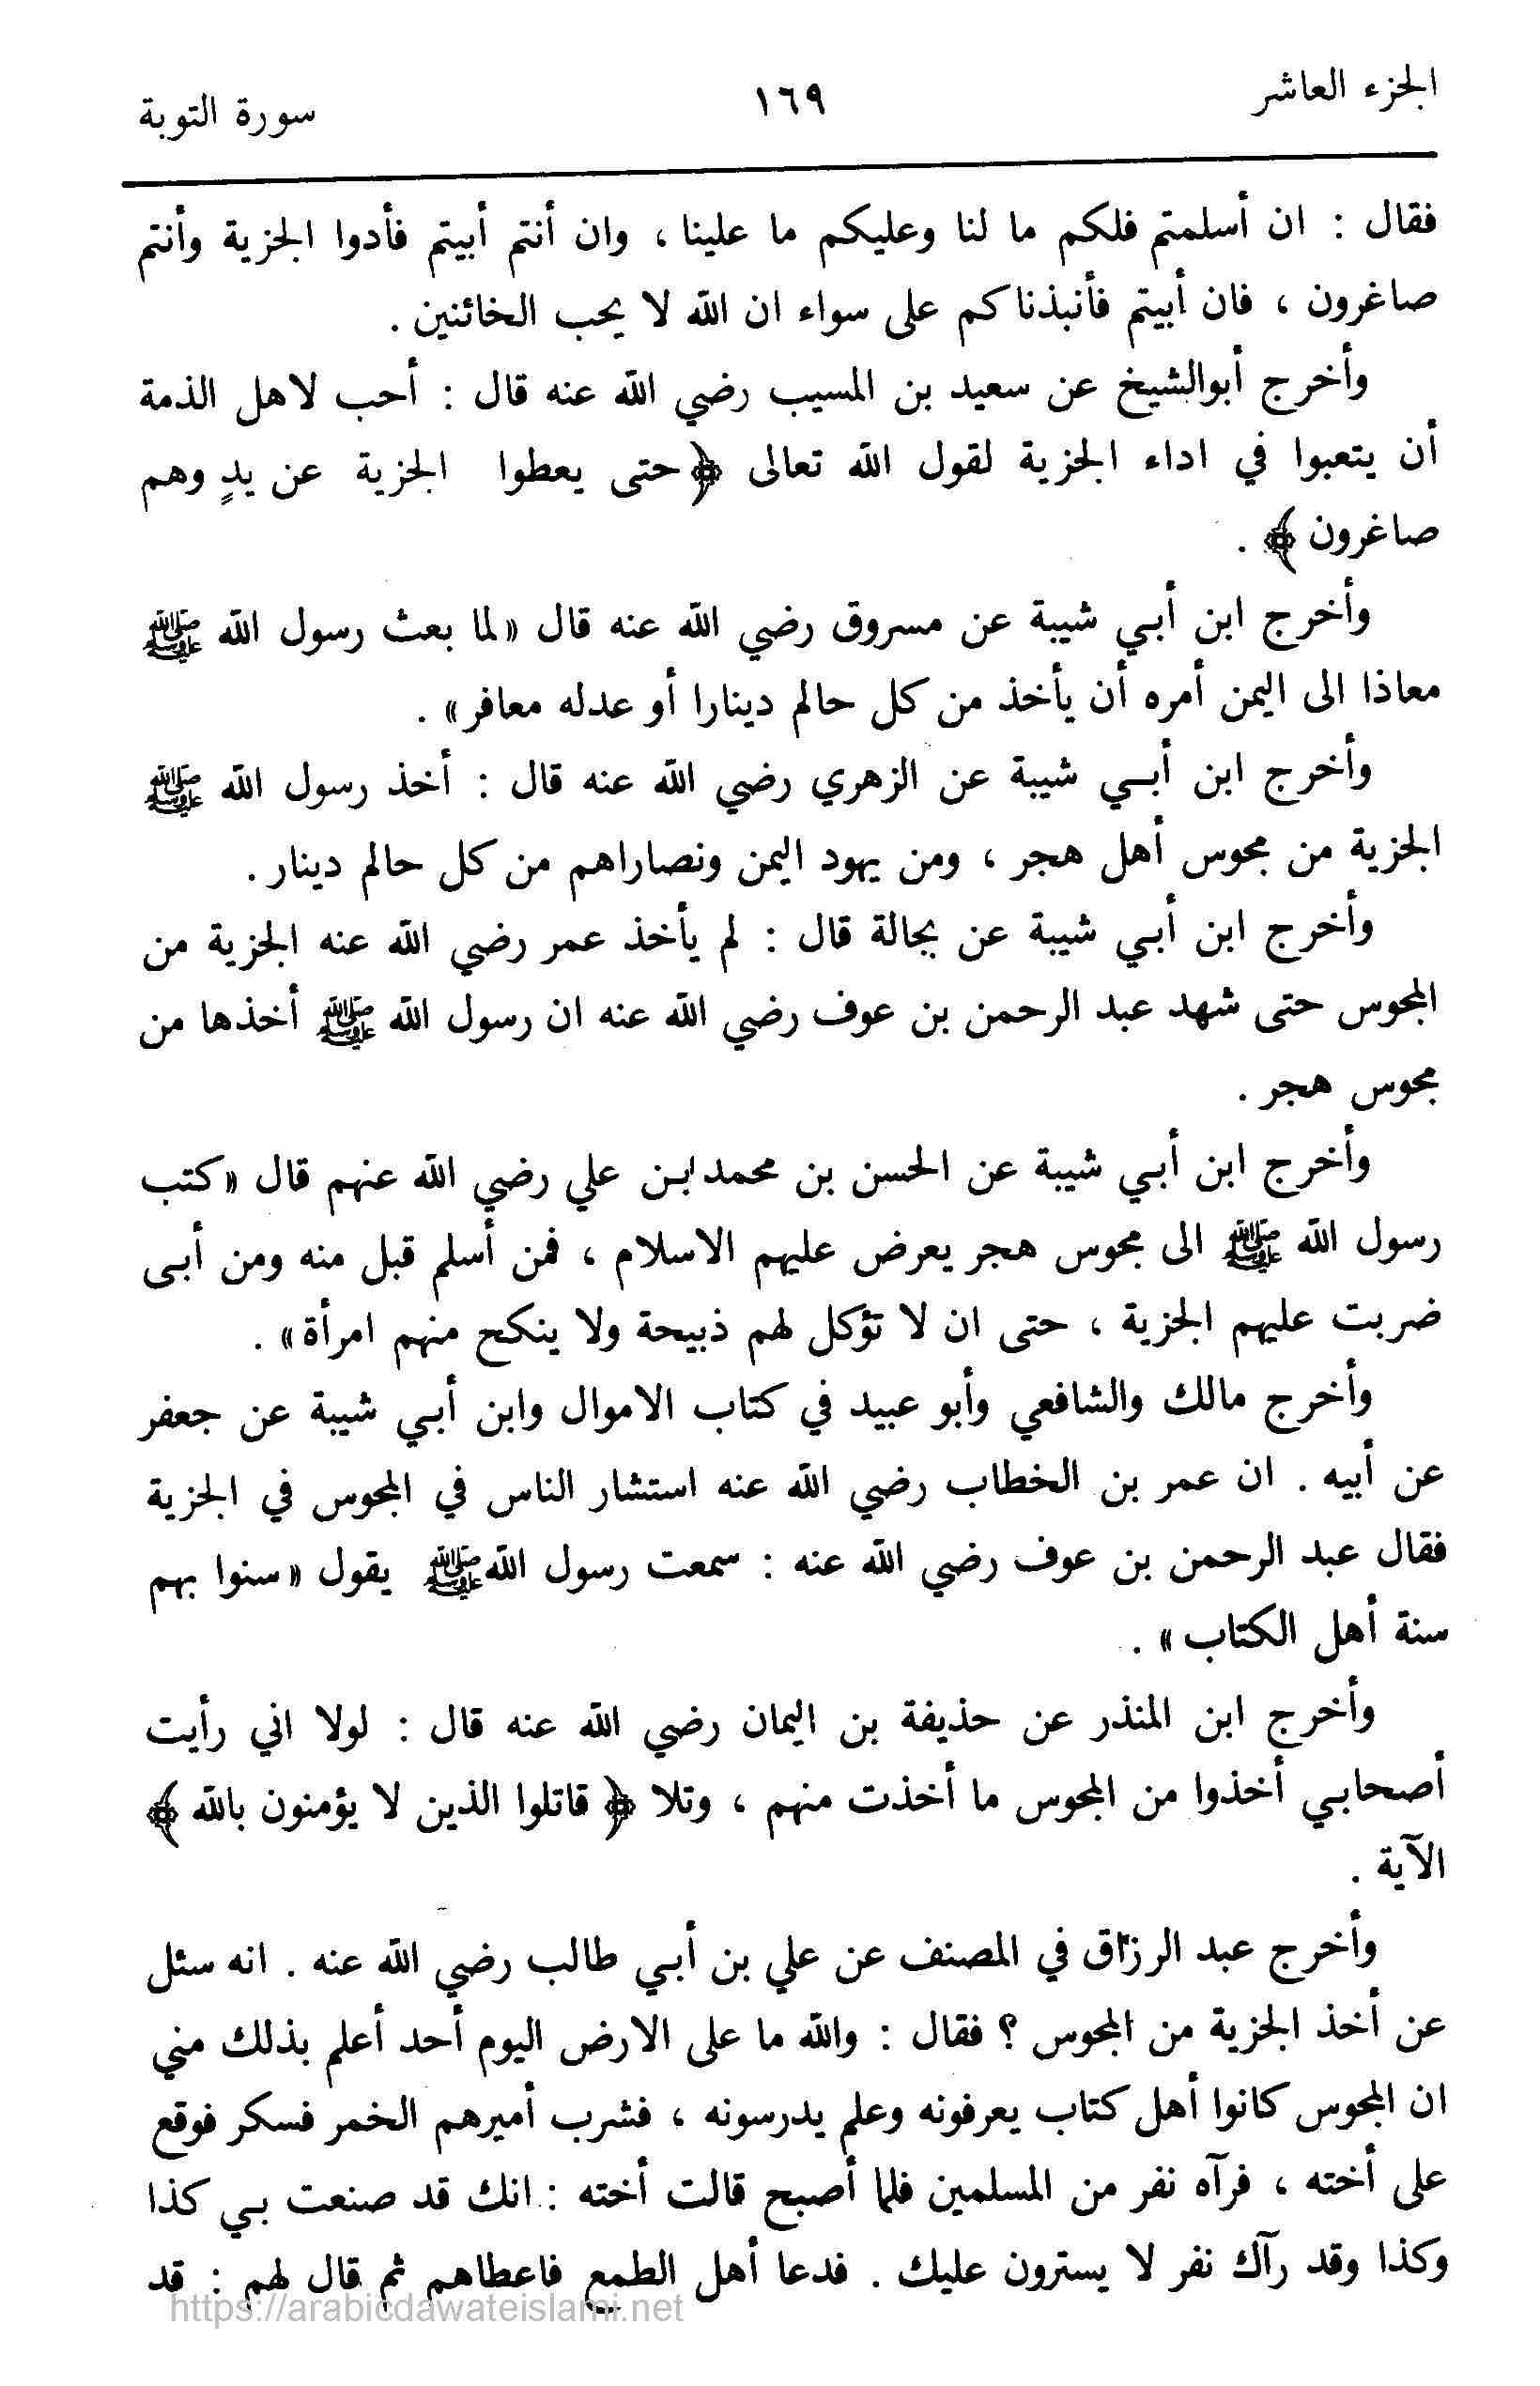 الجزء العاشر ١٦٩ سورة التوبة
فقال : ان أسلمتم فلكم ما لنا وعليكم ما علينا ، وان أنتم أبيتم فأدوا الجزية وأنتم
صاغرون ، فان أبيتم فأنبذناكم على سواء ان الله لا يحب الخائنين .
وأخرج أبوالشيخ عن سعيد بن المسيب رضي الله عنه قال : أحب لاهل الذمة
أن يتعبوا في اداء الجزية لقول الله تعالى ﴿حتى يعطوا الجزية عن يدٍ وهم
صاغرون﴾ .
وأخرج ابن أبي شيبة عن مسروق رضي الله عنه قال «لما بعث رسول الله ﷺ
معاذا الى اليمن أمره أن يأخذ من كل حالم دينارا أو عدله معافر» .
وأخرج ابن أبي شيبة عن الزهري رضي الله عنه قال : أخذ رسول الله ﷺ
الجزية من مجوس أهل هجر ، ومن يهود اليمن ونصاراهم من كل حالم دينار .
وأخرج ابن أبي شيبة عن بجالة قال : لم يأخذ عمر رضي الله عنه الجزية من
المجوس حتى شهد عبد الرحمن بن عوف رضي الله عنه ان رسول الله ﷺ أخذها من
مجوس هجر .
وأخرج ابن أبي شيبة عن الحسن بن محمد ابن علي رضي الله عنهم قال «كتب
رسول الله ﷺ الى مجوس هجر يعرض عليهم الاسلام ، فمن أسلم قبل منه ومن أبى
ضربت عليهم الجزية ، حتى ان لا تؤكل لهم ذبيحة ولا ينكح منهم امرأة» .
وأخرج مالك والشافعي وأبو عبيد في كتاب الاموال وابن أبي شيبة عن جعفر
عن أبيه . ان عمر بن الخطاب رضي الله عنه استشار الناس في المجوس في الجزية
فقال عبد الرحمن بن عوف رضي الله عنه : سمعت رسول الله ﷺ يقول «سنوا بهم
سنة أهل الكتاب» .
وأخرج ابن المنذر عن حذيفة بن اليمان رضي الله عنه قال : لولا اني رأيت
أصحابي أخذوا من المجوس ما أخذت منهم ، وتلا ﴿قاتلوا الذين لا يؤمنون بالله﴾
الآية .
وأخرج عبد الرزاق في المصنف عن علي بن أبي طالب رضي الله عنه . انه سئل
عن أخذ الجزية من المجوس ؟ فقال : والله ما على الارض اليوم أحد أعلم بذلك مني
ان المجوس كانوا أهل كتاب يعرفونه وعلم يدرسونه ، فشرب أميرهم الخمر فسكر فوقع
على أخته ، فرآه نفر من المسلمين فلما أصبح قالت أخته : انك قد صنعت بي كذا
وكذا وقد رآك نفر لا يسترون عليك . فدعا أهل الطمع فاعطاهم ثم قال لهم : قد
https://arabicdawateislami.net